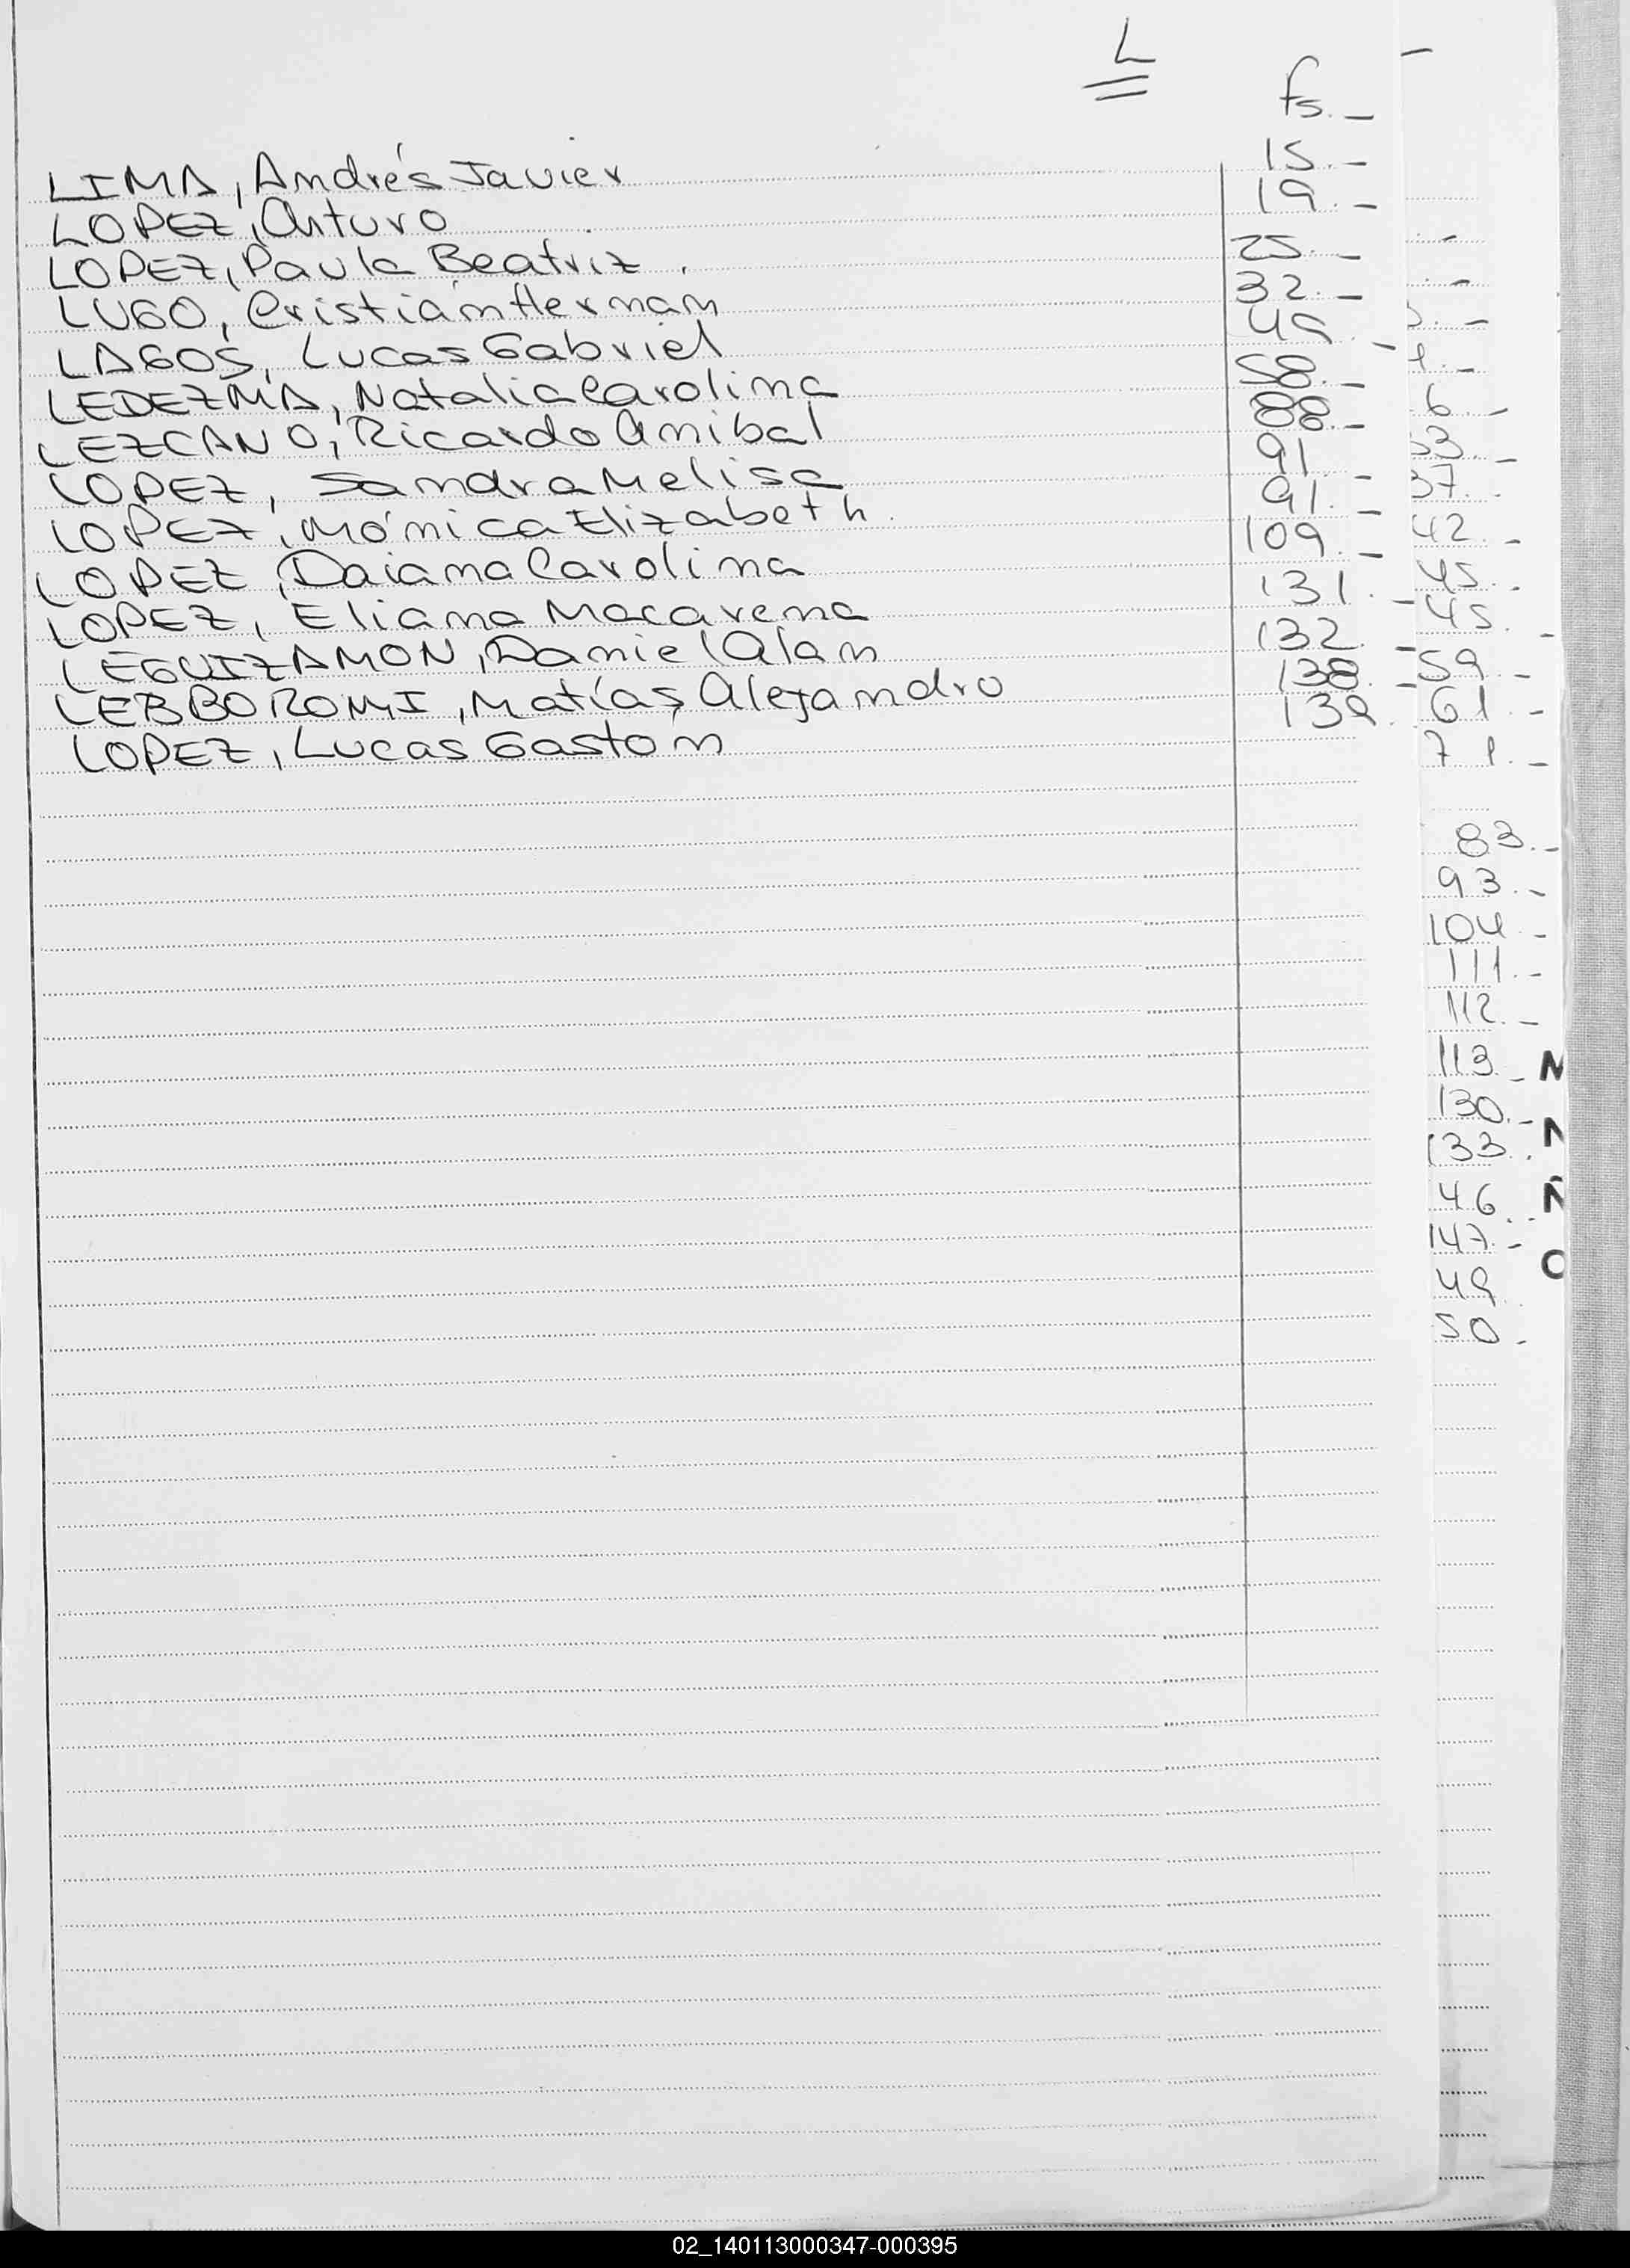 L
fs.-
LIMA, Andrés Javier 15.-
LOPEZ, Arturo 19.-
LOPEZ, Paula Beatriz. 25.-
LUGO, Cristián Hernán 32.-
LAGOS, Lucas Gabriel 49.-
LEDEZMA, Natalia Carolina 58.-
LEZCANO, Ricardo Anibal 88.-
LOPEZ, Sandra Melisa 91.-
LOPEZ, Mónica Elizabeth. 91.-
LOPEZ, Daiana Carolina 109.-
LOPEZ, Eliana Macarena 131.-
LEGUIZAMON, Daniel Alan 132.-
LEBBORONI, Matías Alejandro 138.-
LOPEZ, Lucas Gaston 139.
6.-
33.-
37.-
42.-
45.-
45.-
59.-
61.-
71.-
83.-
93.-
104.-
111.-
112.-
113.-
130.-
133.-
46.-
147.-
49
50.-
M
N
Ñ
O
02_140113000347-000395